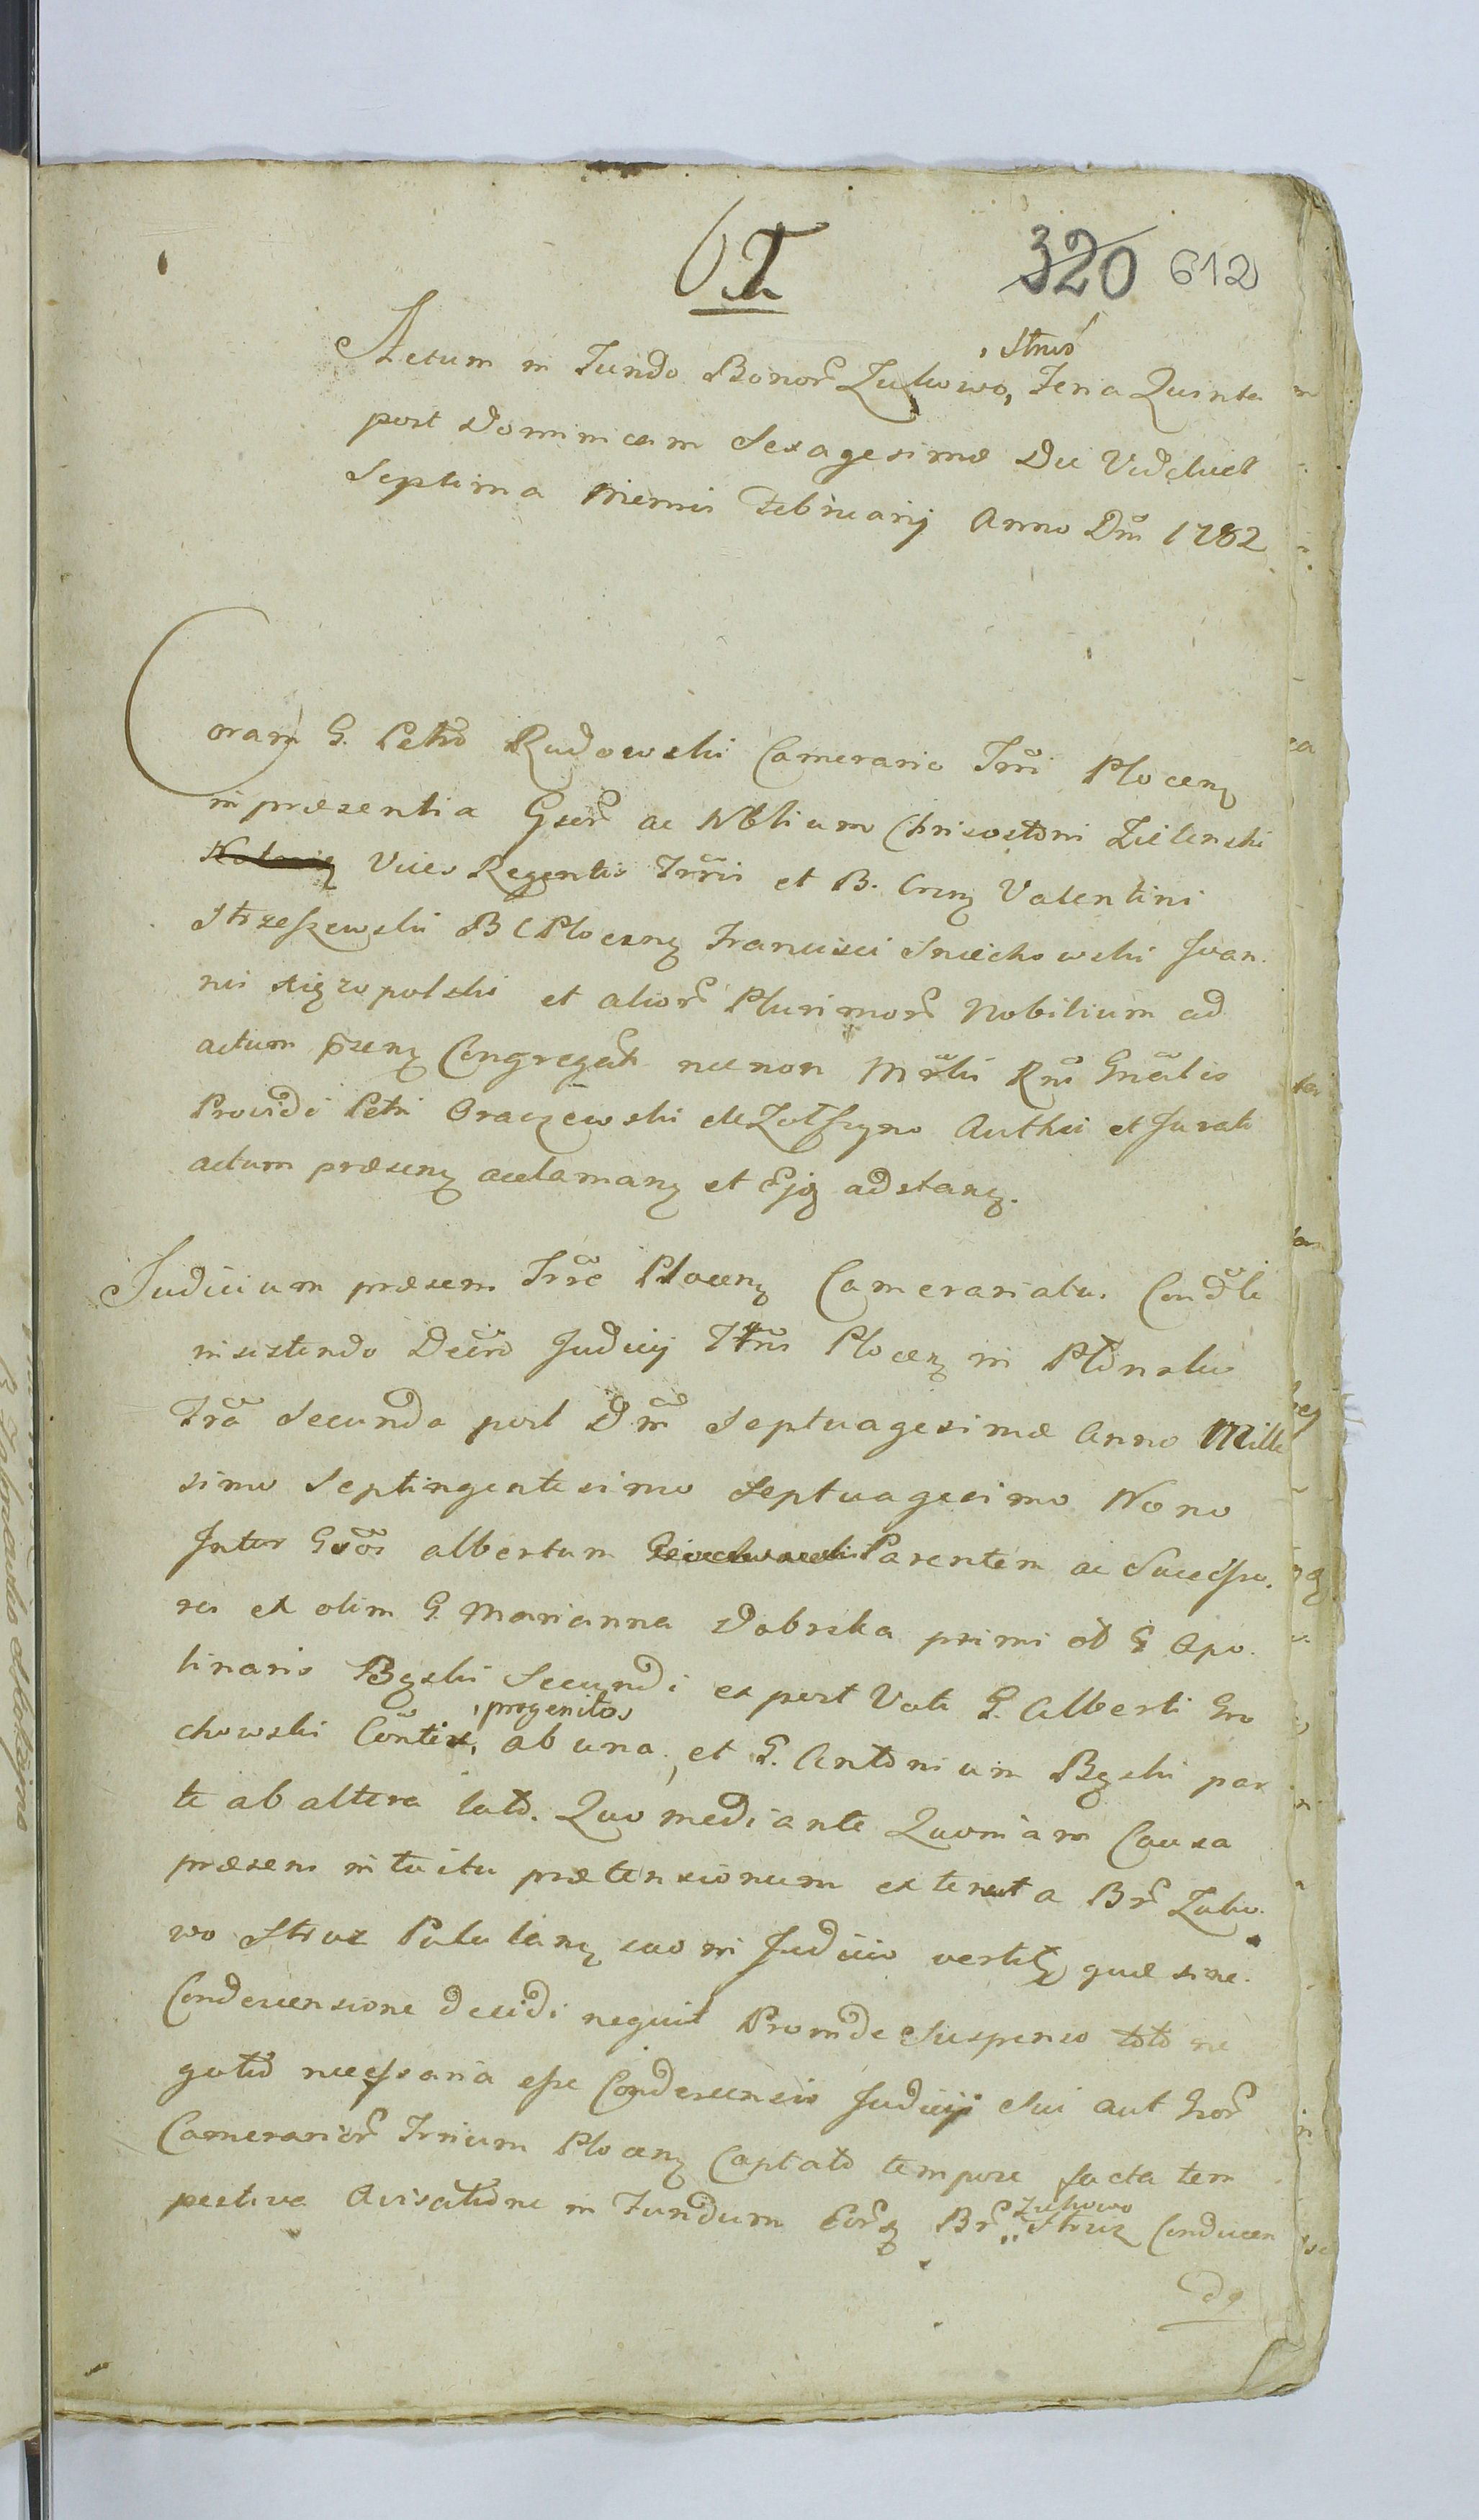 320 612
Actum in Fundo Bonor Zukowo, Strus Feria Quinta
post Dominicam Sexagesimæ Die Videlicet
Septima Mensis Februarij Anno Dni 1782
Coram G. Petro Rudowski Camerario Trri Plocen
in præsentia Gserr ac Nblium Chrisostomi Zielenski
Vices Regentis Trris et B. Cnen Valentini
Strzeszewski B C Plocen Francisci Sniechowski Joan
nis et alior Plurimor Nobilium ad
actum psen Congregat necnon Mrlis Rni Gnealis
Providi Petri Oraczewski de Authci et Jurati
actum præsen acclaman et Ejq adstan.
Judicium præsens Trre Plocen Camerariatus Condle
insistendo Decro Judicij Trris Plocen in Ptonalus
Fra Secunda post Dni Septuagesimæ Anno Mille
simo Septingentesimo Septuagesimo Nono
Inter Gsos Albertum Parentem ac Successo
res ex olim G. Marianna Dobrska primi et G Apo
linaris Bgski Secundi ex post Voti G. Alberti Gro
chowski Contis, progenitos ab una, et G. Antonium Bgski par
te ab altera lato. Quo mediante Quoniam Causa
præsens intuitu prætensionum ex tenuta Br Zuko
wo Strus Pululan suo in Judicio vertitq quæ sine
Condescensione decidi nequit Proinde Suspenso toto ne
gotio necessaria esse Condescensio Judicij sui aut Gror
Camerarior Trrium Plocen Captato tempore facta tem
pestiva Avisatione in Fundum Eorq Br Zukowo Strus Conducen
dq